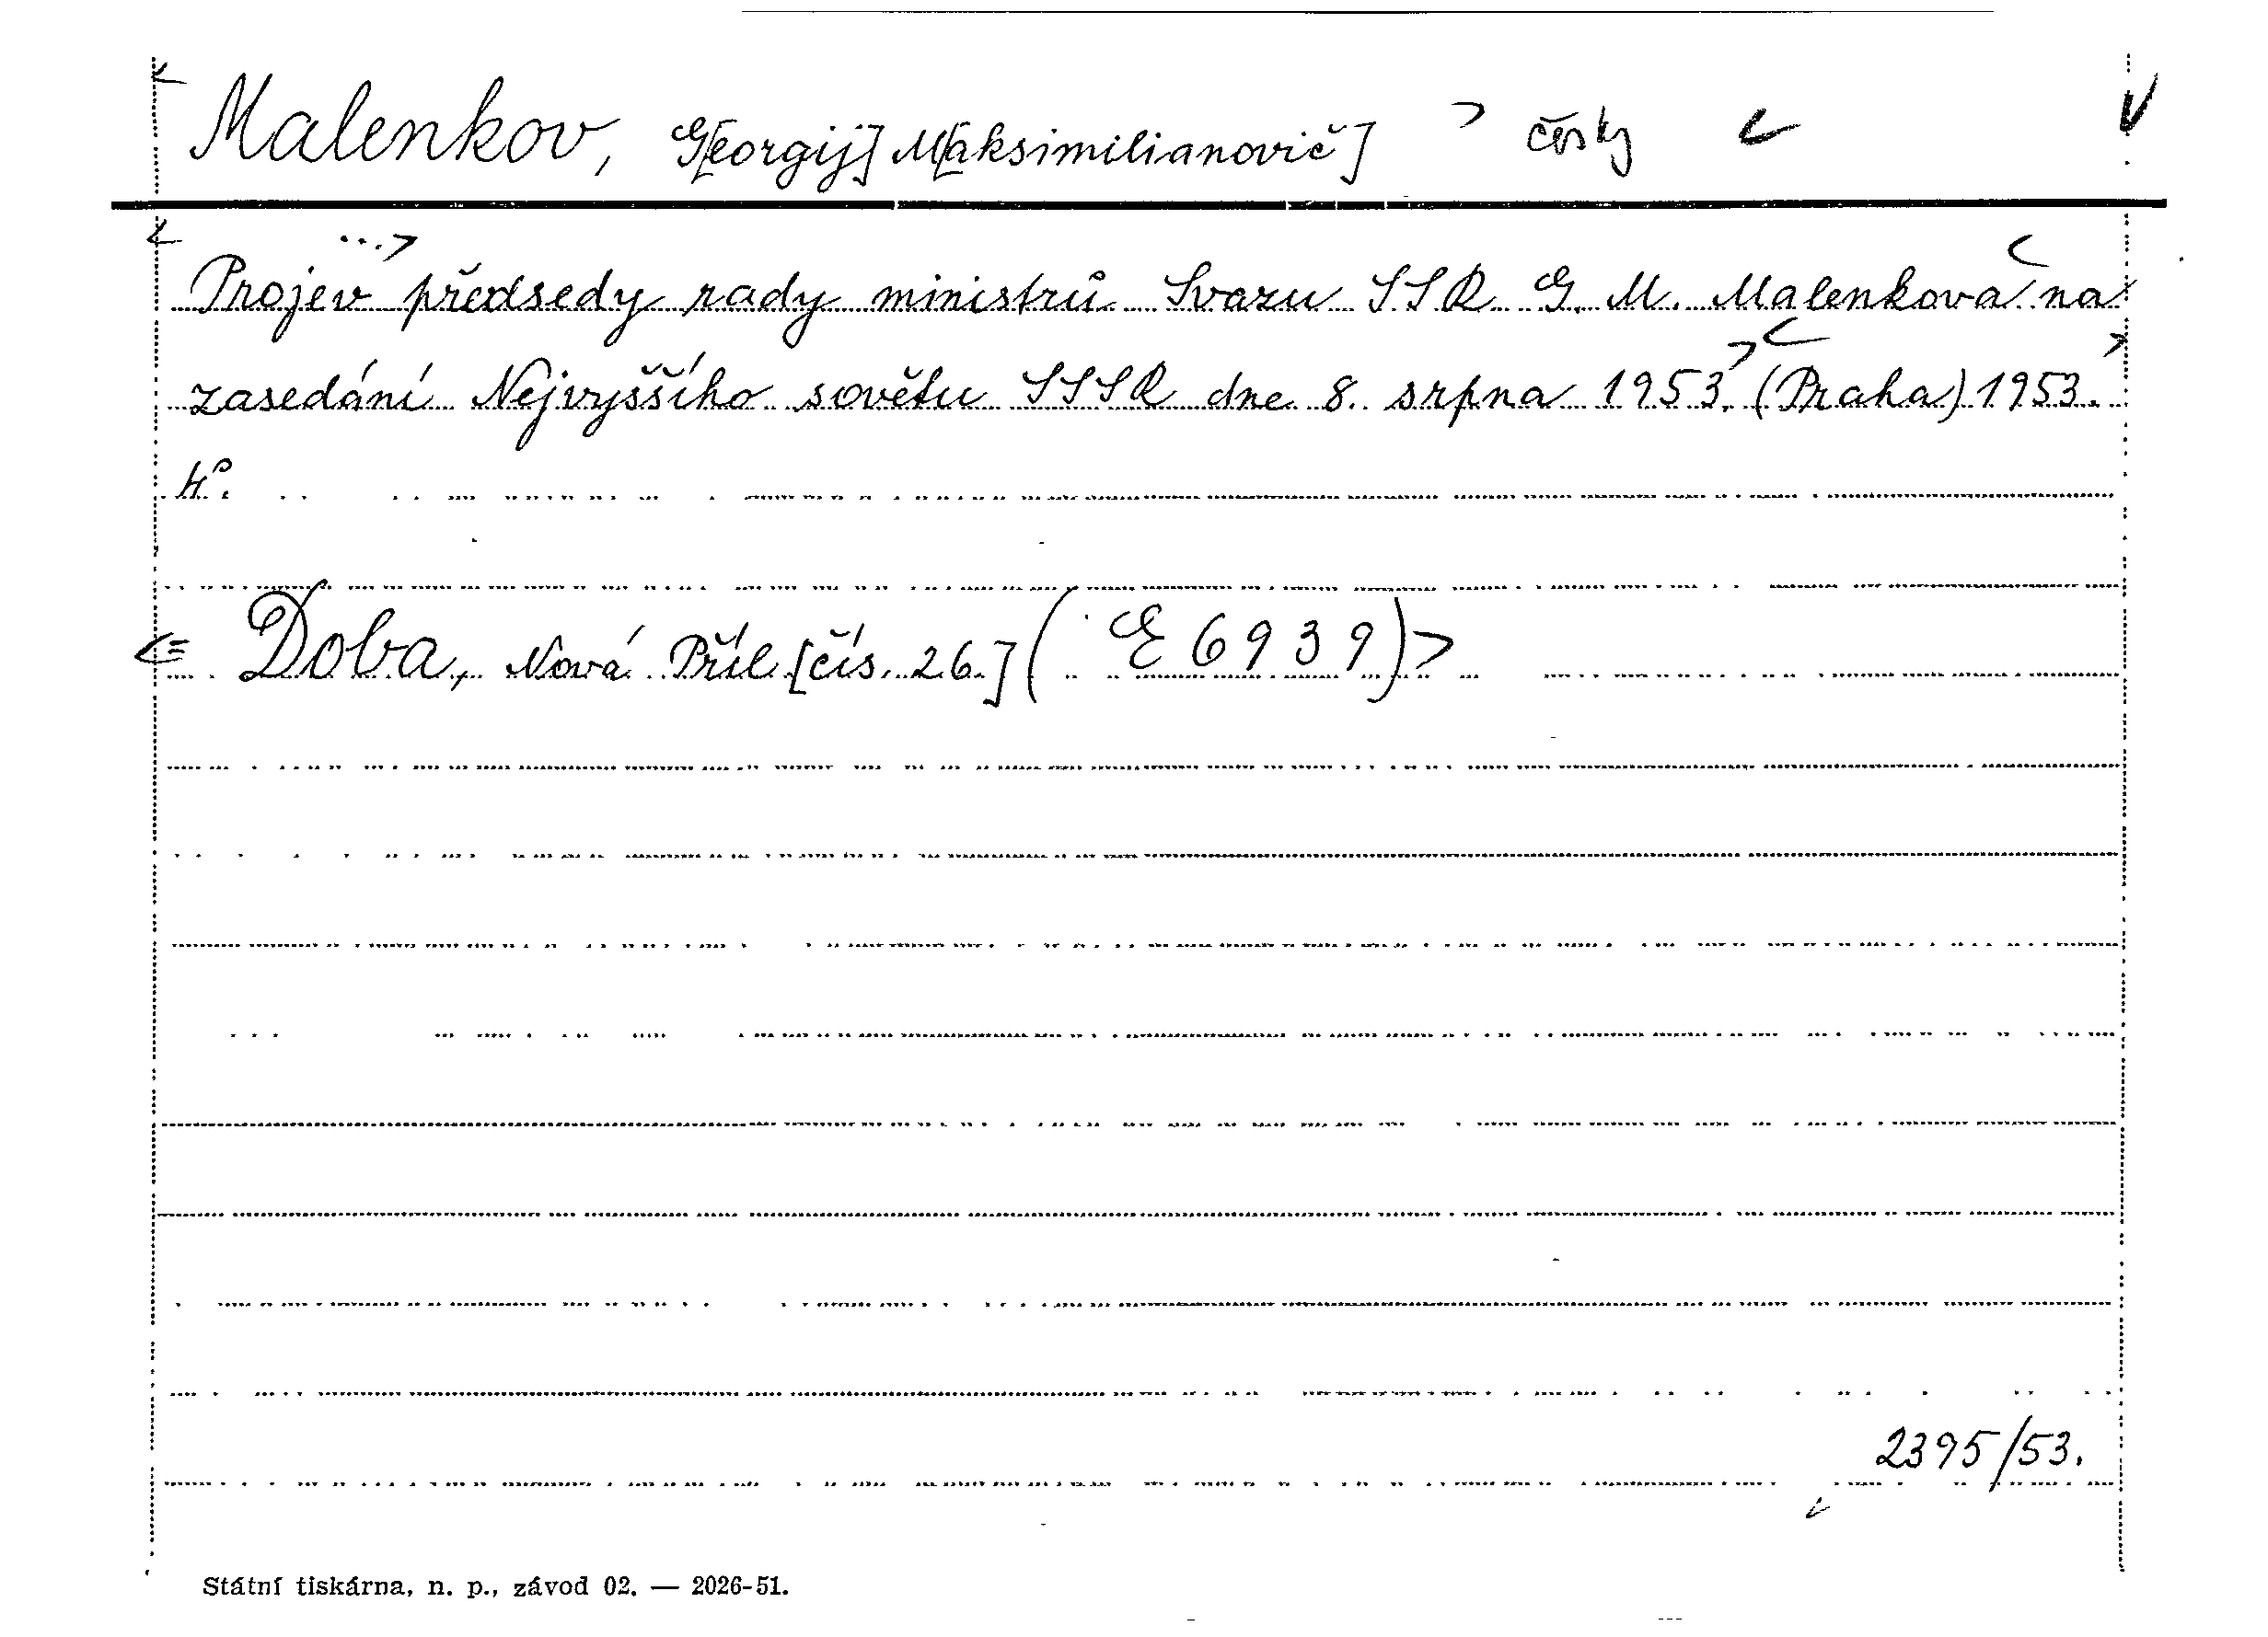 Malenkov, G[eorgij] M[aksimilianovič] česky
Projev předsedy rady ministrů Svazu SSR G. M. Malenkova na
zasedání Nejvyššího sovětu SSSR dne 8. srpna 1953. (Praha) 1953.
4°.
Doba, Nová Příl. [čís. 26.] (E 6939)
2395/53.
Státní tiskárna, n. p., závod 02. — 2026-51.